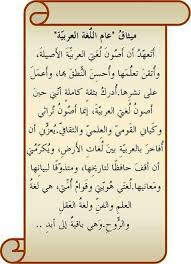 ميثاقُ "عام اللُّغة العربيّة"
أتعهّدُ أن أصونَ لُغتي العربيّةَ الأصيلةَ،
وأُتقنَ تعلّمَها وأُحسنَ النُّطقَ بها، وأعملَ
على نشرِها. أُدركُ بثقة كاملة أنّني حين
أصونُ لُغتي العربيّة، إنّما أصونُ تُراثي
وكياني القوميّ والعلميّ والثّقافيّ. وأنّني حين
أُفاخرُ بالعربيّة بين لُغاتِ الأرضِ، ويُكرّمُني
أن أقفَ حافظًا لتاريخها، ومتذوّقًا لبيانها
ومعانيها. لُغتي هُويّتي وقوامُ أُمّتي، هي لغةُ
العلمِ والفنِّ ولغةُ العقلِ
والرُّوحِ. وهي باقيةٌ إلى أبدِ ..